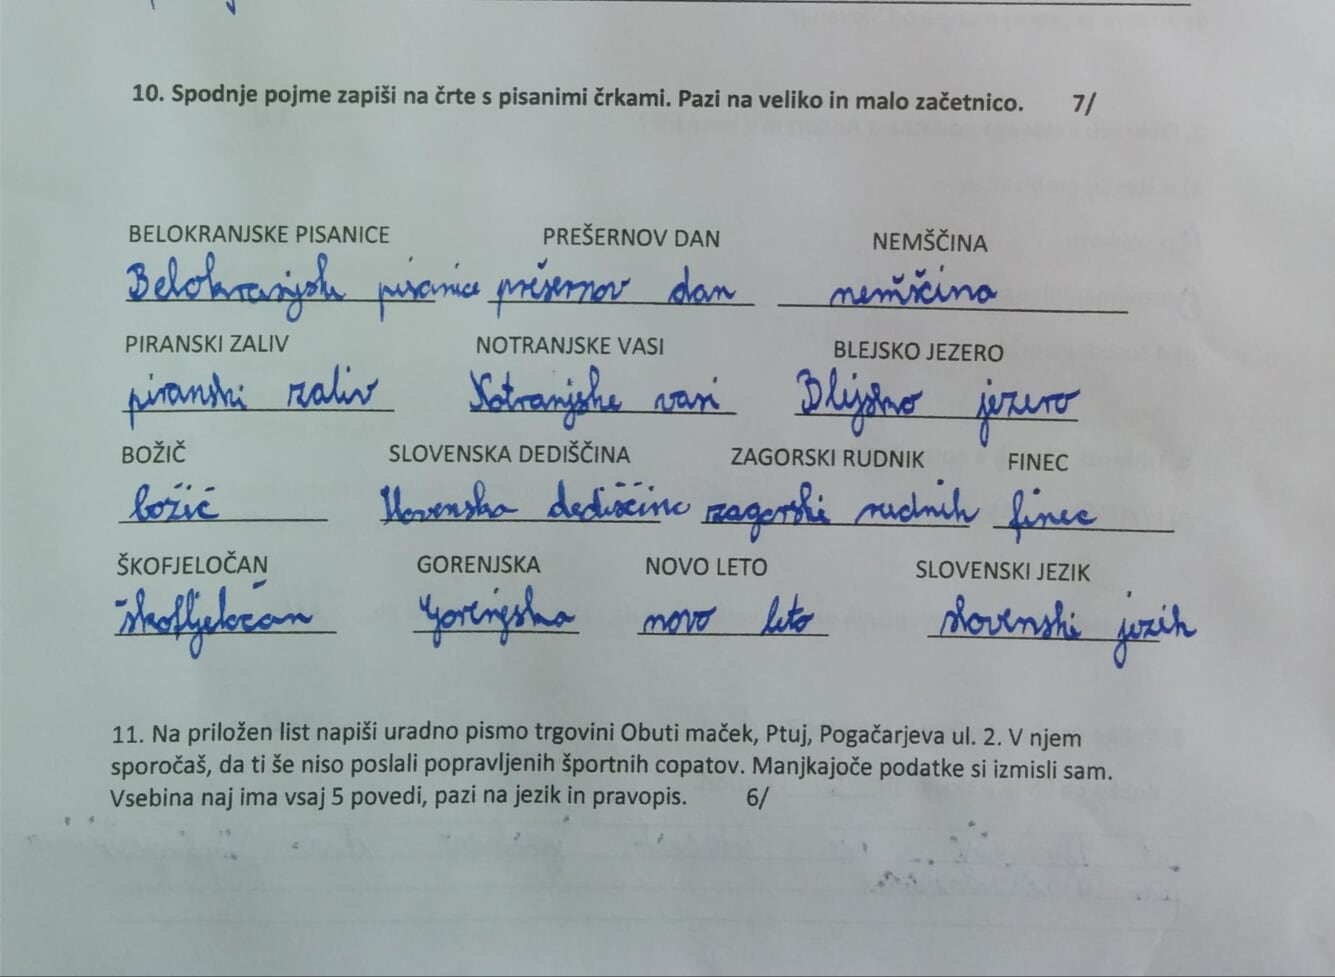 10. Spodnje pojme zapiši na črte s pisanimi črkami. Pazi na veliko in malo začetnico. 7/
BELOKRANJSKE PISANICE PREŠERNOV DAN NEMŠČINA
Belokranjske pisanice prešernov dan nemščina
PIRANSKI ZALIV NOTRANJSKE VASI BLEJSKO JEZERO
piranski zaliv Notranjske vasi Blejsko jezero
BOŽIČ SLOVENSKA DEDIŠČINA ZAGORSKI RUDNIK FINEC
božič slovenska dediščina zagorski rudnik finec
ŠKOFJELOČAN GORENJSKA NOVO LETO SLOVENSKI JEZIK
škofjeločan Gorenjska novo leto slovenski jezik
11. Na priložen list napiši uradno pismo trgovini Obuti maček, Ptuj, Pogačarjeva ul. 2. V njem
sporočaš, da ti še niso poslali popravljenih športnih copatov. Manjkajoče podatke si izmisli sam.
Vsebina naj ima vsaj 5 povedi, pazi na jezik in pravopis. 6/